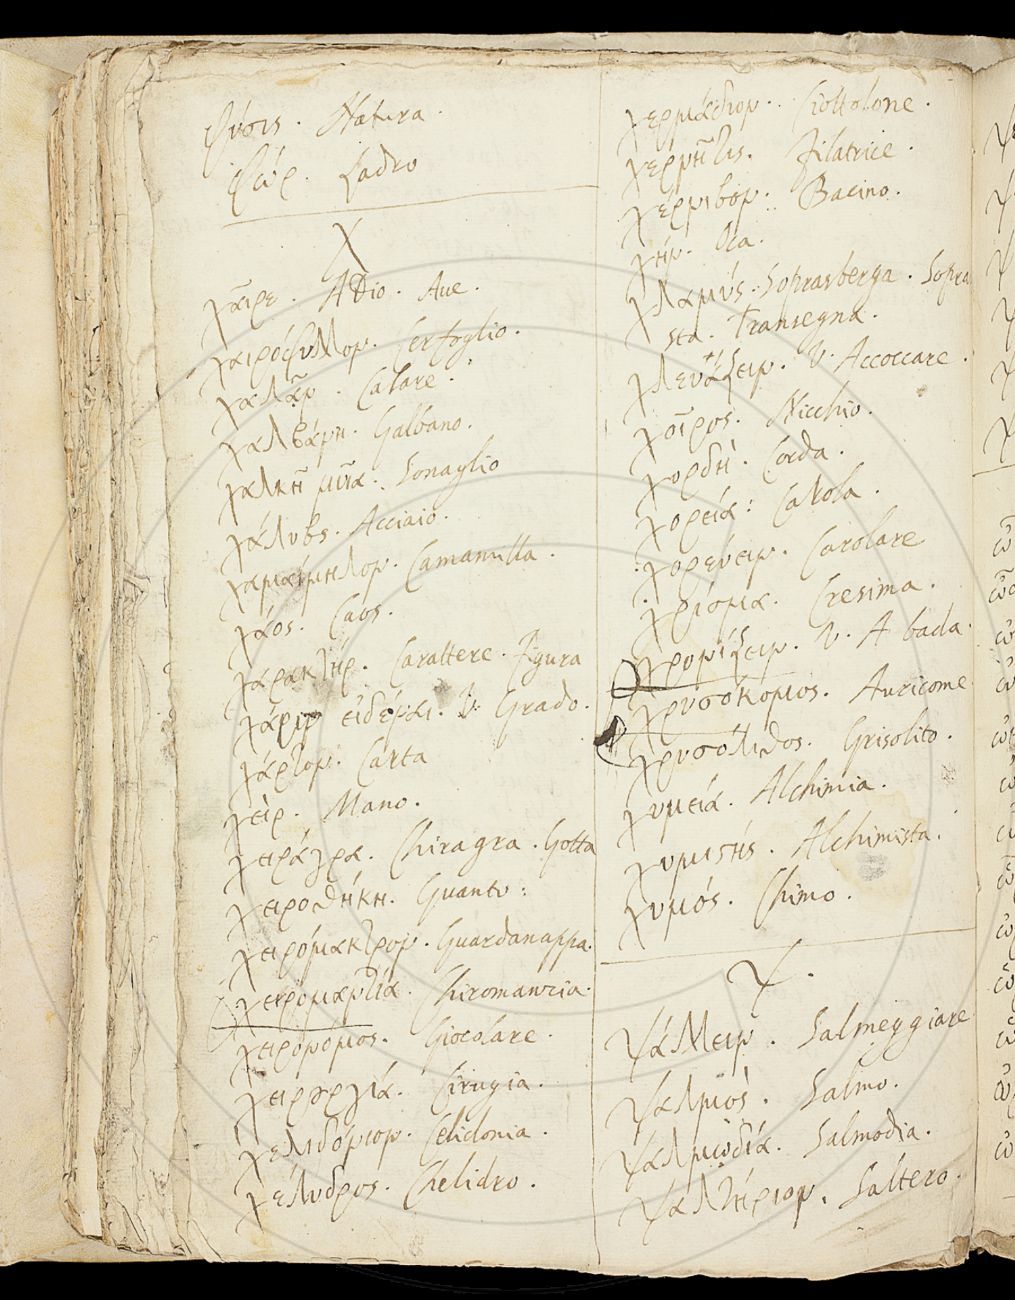 φύσις. Natura.
φώρ. Ladro
Χ
χαῖρε. ADio. Aue.
χαιρόφυλλον. Cerfoglio.
χαλᾶν. Calare.
χαλβάνη. Galbano.
χαλκῆ μυῖα. Sonaglio
χάλυβς. Acciaio.
χαμαίμηλον. Camamilla.
χάος. Caos.
χαρακτήρ. Carattere. Figura
χάριν εἰδέναι. V. Grado.
χάρτον. Carta
χείρ. Mano.
χειράγρα. Chiragra. Gotta
χειροθήκη. Guanto:
χειρόμακτρον. Guardanappa.
χειρομαντία. Chiromanzia.
χειρονόμος. Giocolare.
χειρυργία. Cirugia.
χελιδόνιον. Celidonia.
χέλυδρος. Chelidro.
χερμάδιον. Ciottolone.
χερνῆτις. Filatrice.
χέρνιβον. Bacino.
χήν. Oca.
χλαμύς. Soprasberga. Sopra
sta. Transegna.
χλευάζειν. V. Accoccare.
χοῖρος. Nicchio.
χορδή. Corda.
χορεία: Carola.
χορεύειν. Carolare
χρίσμα. Cresima.
χρονίζειν. V. A bada.
χρυσόκομος. Auricome
χρυσόλιθος. Grisolito.
χυμεία. Alchimia.
χυμιστής. Alchimista.
χυμός. Chimo.
Ψ.
ψάλλειν. Salmeggiare
ψαλμός. Salmo.
ψαλμωδία. Salmodia.
ψαλτήριον. Saltero.